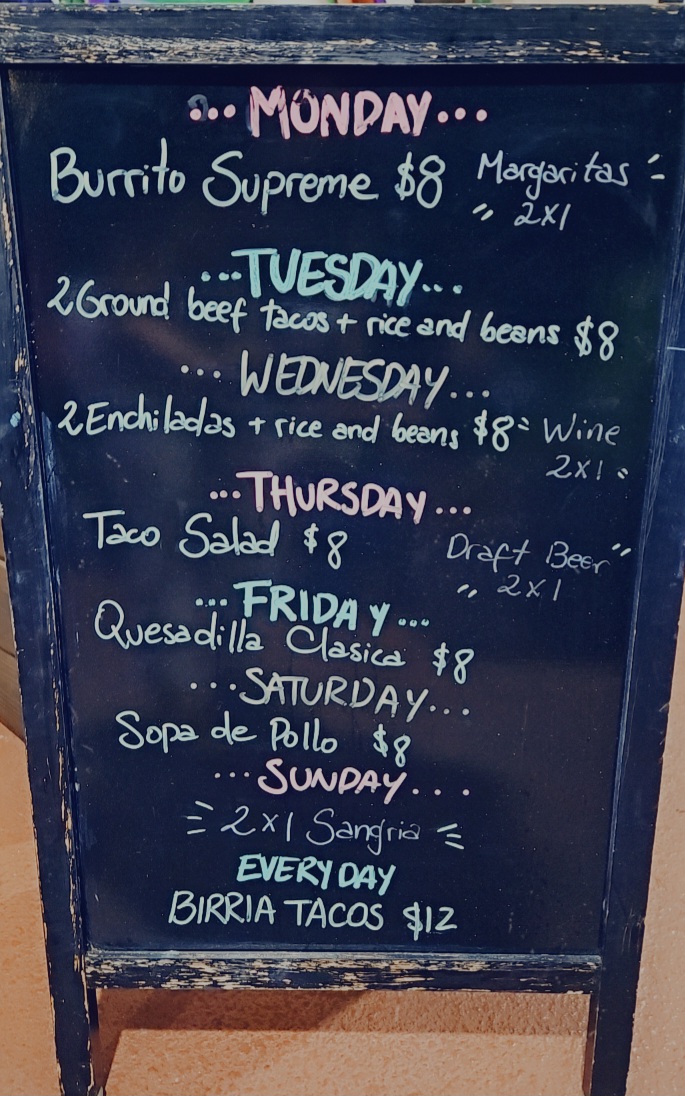 ...MONDAY...
Burrito Supreme $8 Margaritas
2x1
...TUESDAY...
2 Ground beef tacos + rice and beans $8
...WEDNESDAY...
2 Enchiladas + rice and beans $8 Wine
2x1
...THURSDAY...
Taco Salad $8 Draft Beer
2x1
...FRIDAY...
Quesadilla Clasica $8
...SATURDAY...
Sopa de Pollo $8
...SUNDAY...
2x1 Sangria
EVERY DAY
BIRRIA TACOS $12